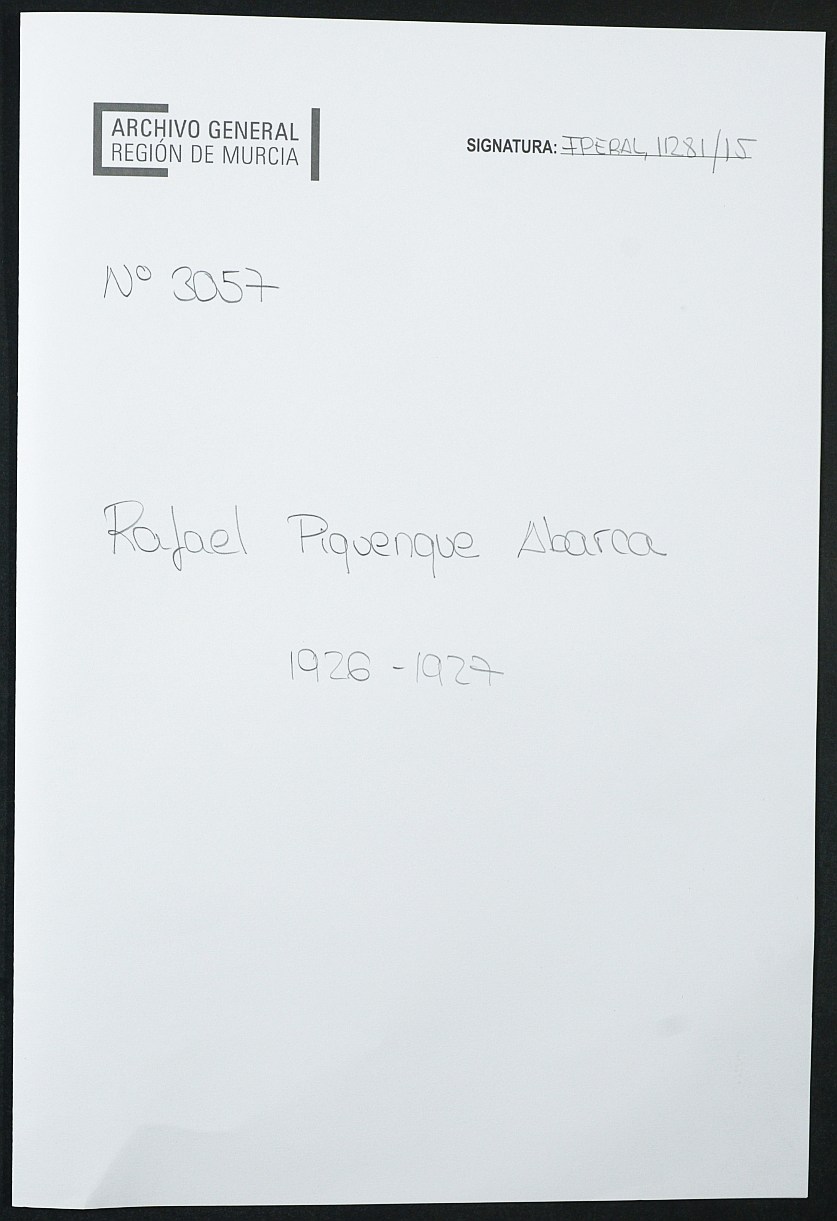 ARCHIVO GENERAL
REGIÓN DE MURCIA
SIGNATURA: IPERAL, 11281/15
Nº 3057
Rafael Piquenque Abarca
1926 - 1927